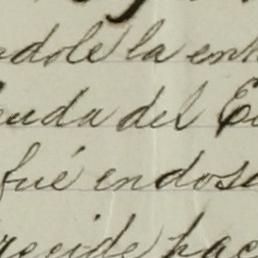 ndole la ent
euda del E
fué endosa
recide hac